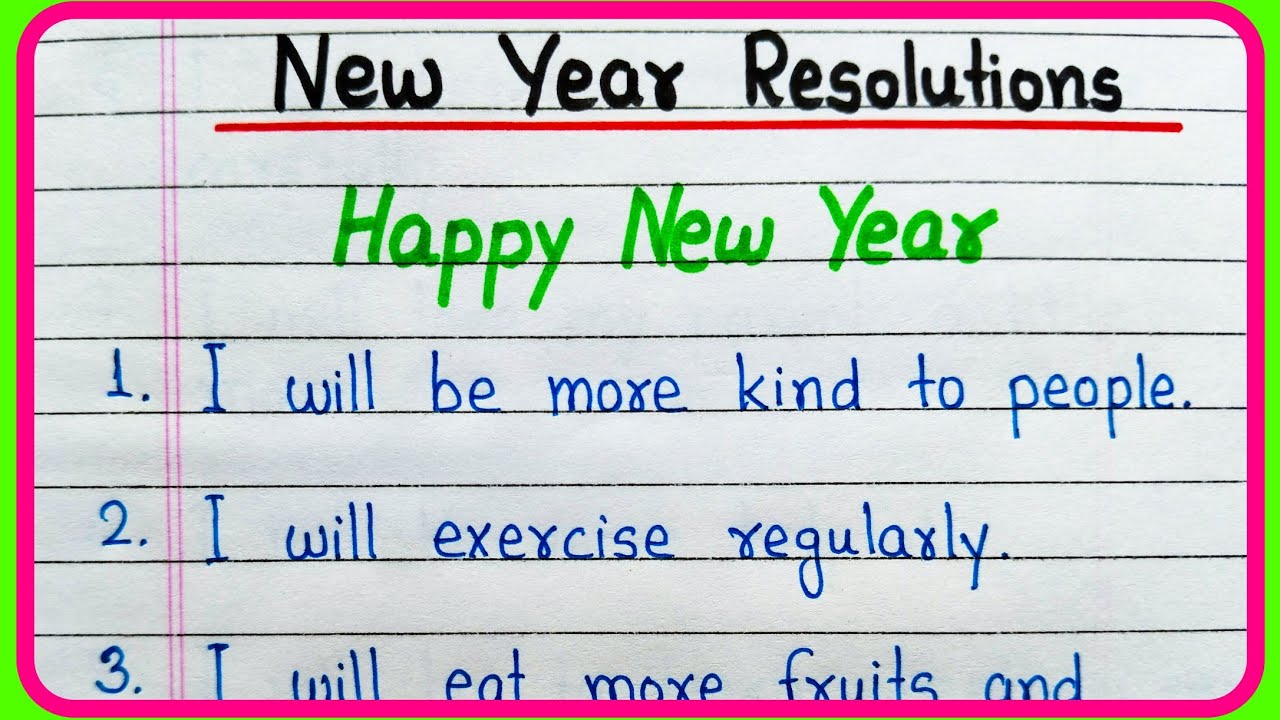 New Year Resolutions
Happy New Year
1. I will be more kind to people.
2. I will exercise regularly.
3. I will eat more fruits and